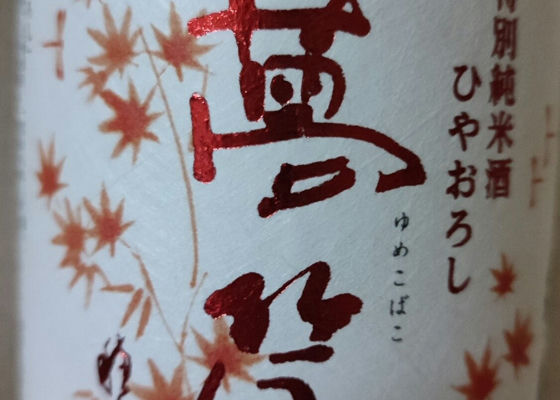 特別純米酒
ひやおろし
ゆめこばこ
夢